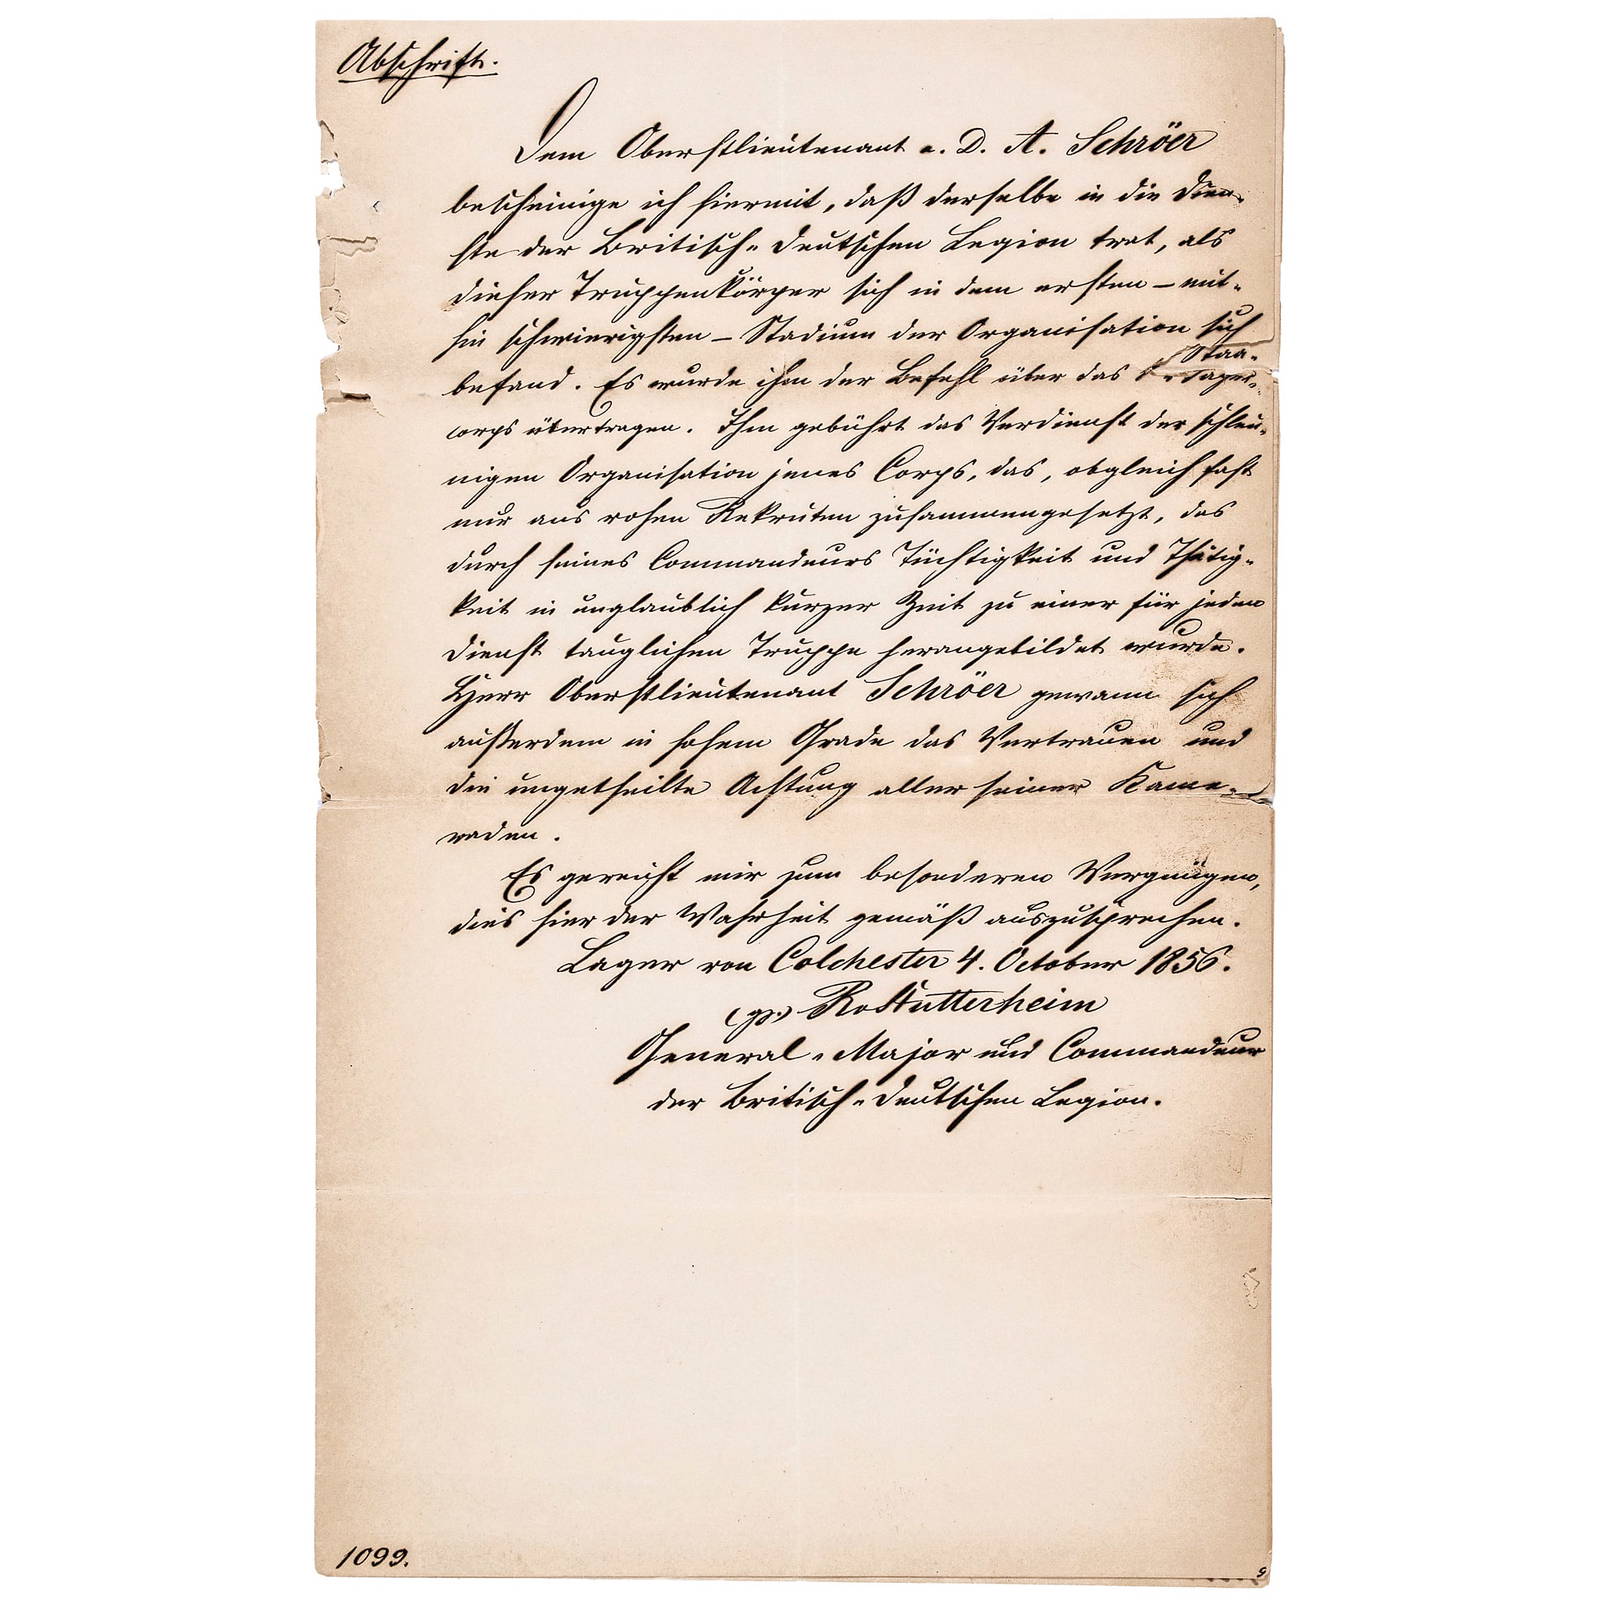 Abschrift.
Dem Oberstlieutenant a. D. A. Schröer
bescheinige ich hiermit, daß derselbe in die Dien-
ste der Britisch-Deutschen Legion trat, als
dieser Truppenkörper sich in dem ersten – mit-
hin schwierigsten – Stadium der Organisation sich
befand. Es wurde ihm der Befehl über das Jäger-
corps übertragen. Ihm gebührt das Verdienst der schleu-
nigen Organisation jenes Corps, das, obgleich fast
nur aus rohen Rekruten zusammengesetzt, das
durch seines Commandeurs Tüchtigkeit und Thätig-
keit in unglaublich kurzer Zeit zu einer für jeden
Dienst tauglichen Truppe herangebildet wurde.
Herr Oberstlieutenant Schröer gewann sich
außerdem in hohem Grade das Vertrauen und
die ungetheilte Achtung aller seiner Kame-
raden.
Es gereicht mir zum besonderen Vergnügen,
dies hier der Wahrheit gemäß auszusprechen.
Lager von Colchester 4. October 1856.
(gz.) Stutterheim
General-Major und Commandeur
der Britisch-Deutschen Legion.
1099.